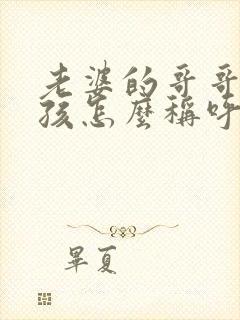 老婆的哥哥
孩怎麼稱呼
畢夏